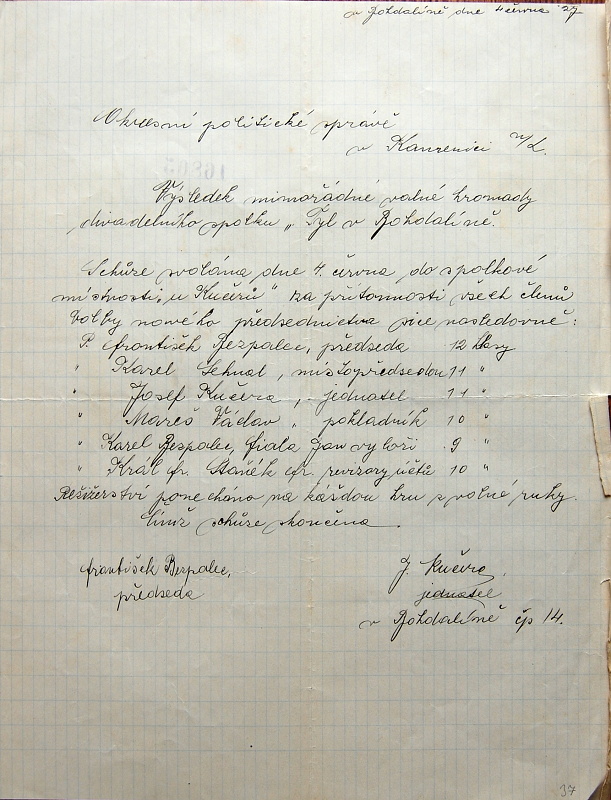 v Bohdalíně dne 4 června 27
Okresní politické správě
v Kamenici n/L.
Výsledek mimořádné valné hromady
divadelního spolku „Tyl v Bohdalíně.
Schůze svolána dne 4. června do spolkové
místnosti „u Kučerů" za přítomnosti všech členů
Volby nového předsednictva sice následovně:
P. František Bezpalec, předseda 12 hlasy
" Karel Sehnal, místopředsedou 11 "
" Josef Kučera, jednatel 11 "
" Mareš Václav, pokladník 10 "
" Karel Bezpalec, Fiala Jan výboři 9 "
" Král fr. Staněk fr. revizory účtů 10 "
Režižerství ponecháno na kážďou hru s volné ruky.
Čímž schůze skončena.
František Bezpalec,
předseda
J. Kučera
jednatel
v Bohdalíně čp 14.
37